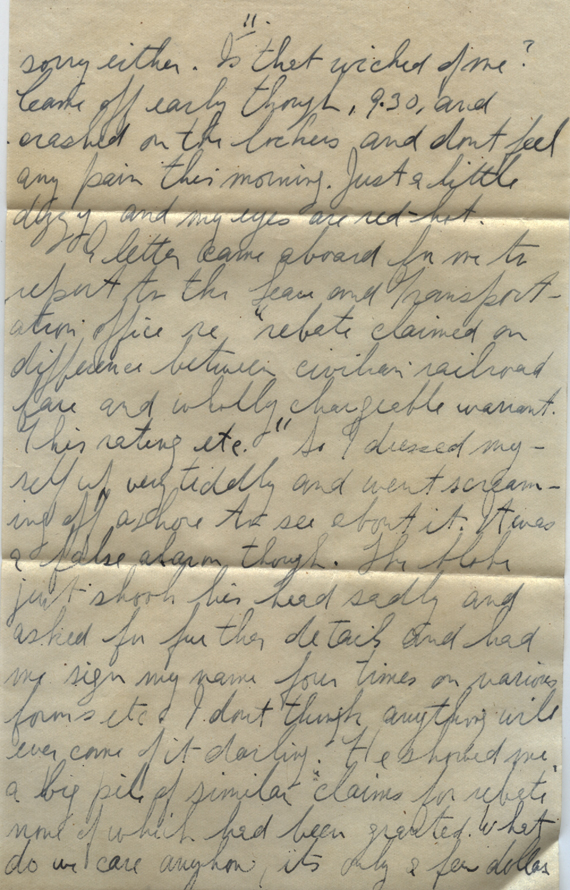 "11.
sorry either. Is that wicked of me?
Came off early though, 9.30, and
crashed on the lockers and dont feel
any pain this morning. Just a little
dizzy and my eyes are red-hot.
A letter came aboard for me to
report to the leave and transport-
ation office re "rebate claimed on
difference between civilian railroad
fare and wholly chargeable warrant.
This rating etc." So I dressed my-
self up very tiddly and went scream-
ing off ashore to see about it. It was
a false alarm though. The bloke
just shook his head sadly and
asked for further details and had
me sign my name four times on various
forms etc. I dont think anything will
ever come of it darling. He showed me
a big pile of similar "claims for rebate"
none of which had been granted. What
do we care anyhow, its only a few dollars